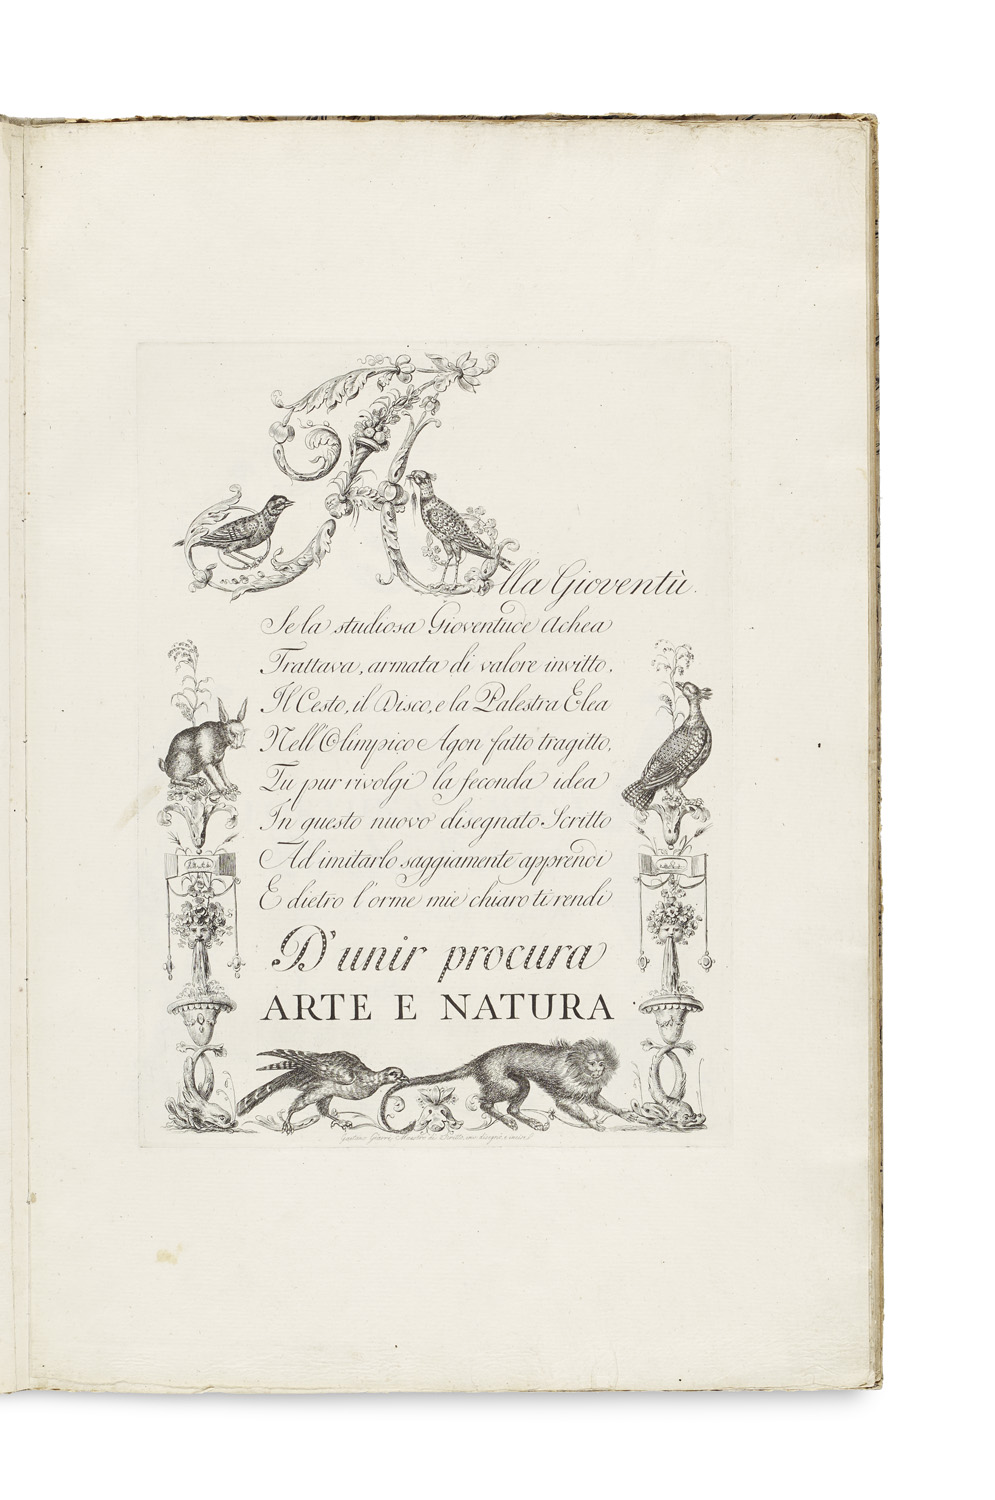 Alla Gioventù.
Se la studiosa Gioventude Achea
Trattava, armata di valore invitto,
Il Cesto, il Disco, e la Palestra Elea
Nell'Olimpico Agon fatto tragitto,
Tu pur rivolgi la seconda idea
In questo nuovo disegnato Scritto
Ad imitarlo saggiamente apprendi
E dietro l'orme mie chiaro ti rendi
D'unir procura
ARTE E NATURA
Maestro di Scritto